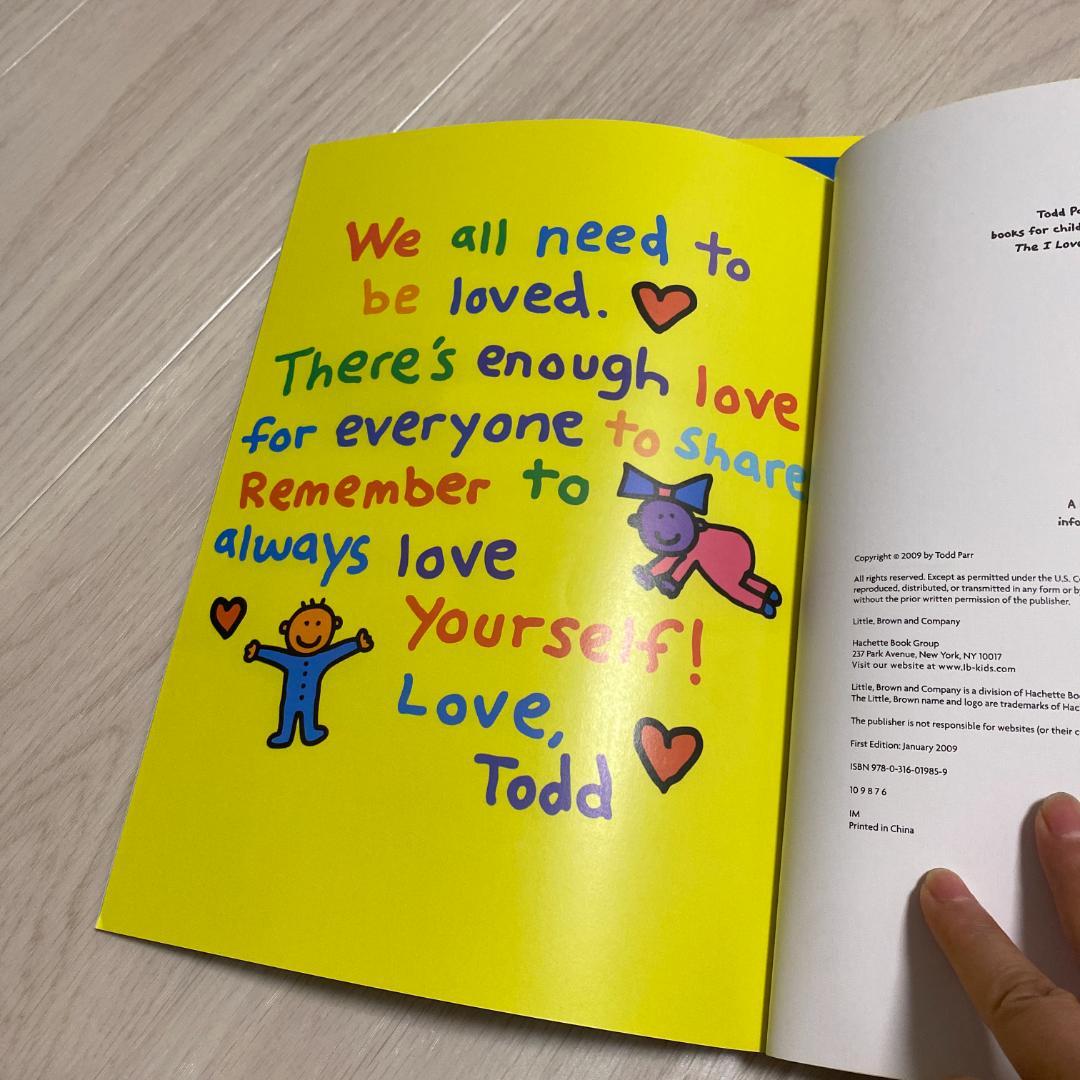 We all need to
be loved.
There's enough love
for everyone to share
Remember to
always love
Yourself!
Love,
Todd
Todd
books for
The I
A
Copyright © 2009 by Todd Parr
All rights reserved. Except as permitted under the U.S.
reproduced, distributed, or transmitted in any form or
without the prior written permission of the publisher.
Little, Brown and Company
Hachette Book Group
237 Park Avenue, New York, NY 10017
Visit our website at www.lb-kids.com
Little, Brown and Company is a division of Hachette
The Little, Brown name and logo are trademarks of
The publisher is not responsible for websites (or their
First Edition: January 2009
ISBN 978-0-316-01985-9
10 9 8 7 6
IM
Printed in China